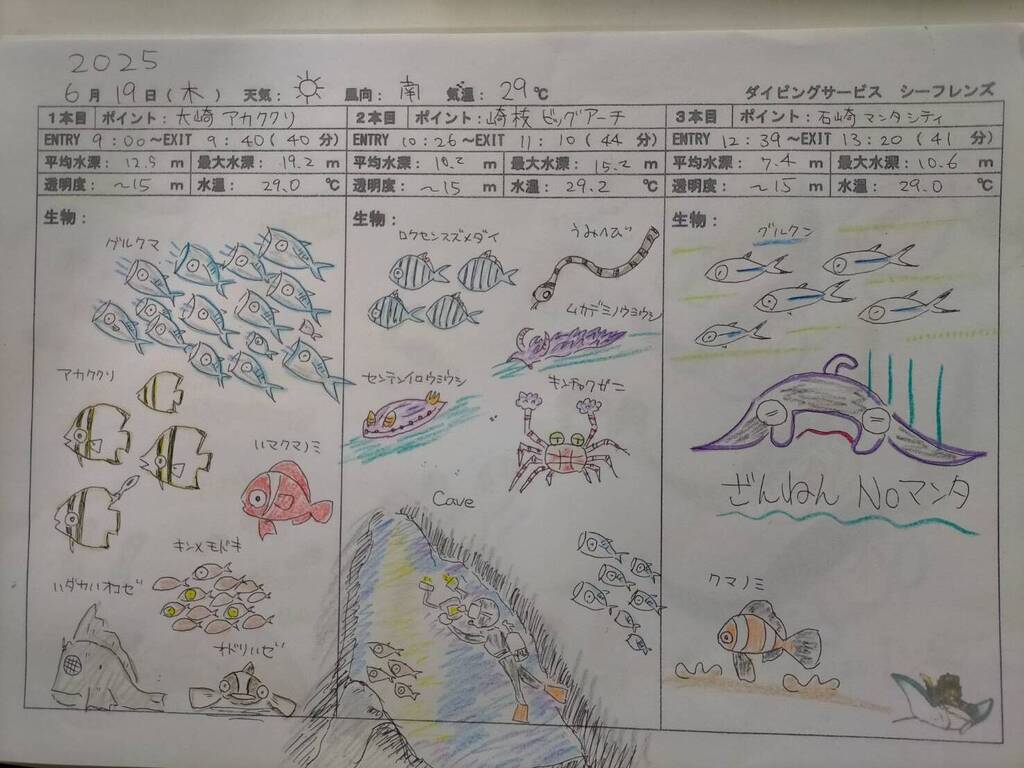 2025
6月 19日(木) 天気: 風向: 南 気温: 29℃ ダイビングサービス シーフレンズ
1本目 ポイント: 大崎 アカククリ
ENTRY 9:00〜EXIT 9:40(40分)
平均水深: 12.5 m 最大水深: 19.2 m
透明度: 〜15 m 水温: 29.0 ℃
生物:
グルクマ
アカククリ
ハマクマノミ
キンメモドキ
ハダカハオコゼ
オドリハゼ
2本目 ポイント: 崎枝 ビッグアーチ
ENTRY 10:26〜EXIT 11:10(44分)
平均水深: 10.2 m 最大水深: 15.2 m
透明度: 〜15 m 水温: 29.2 ℃
生物:
ロクセンスズメダイ
うみヘビ
ムカデミノウミウシ
センテンイロウミウシ
キンチャクガニ
Cave
3本目 ポイント: 石崎 マンタシティ
ENTRY 12:39〜EXIT 13:20(41分)
平均水深: 7.4 m 最大水深: 10.6 m
透明度: 〜15 m 水温: 29.0 ℃
生物:
グルクン
ざんねん Noマンタ
クマノミ